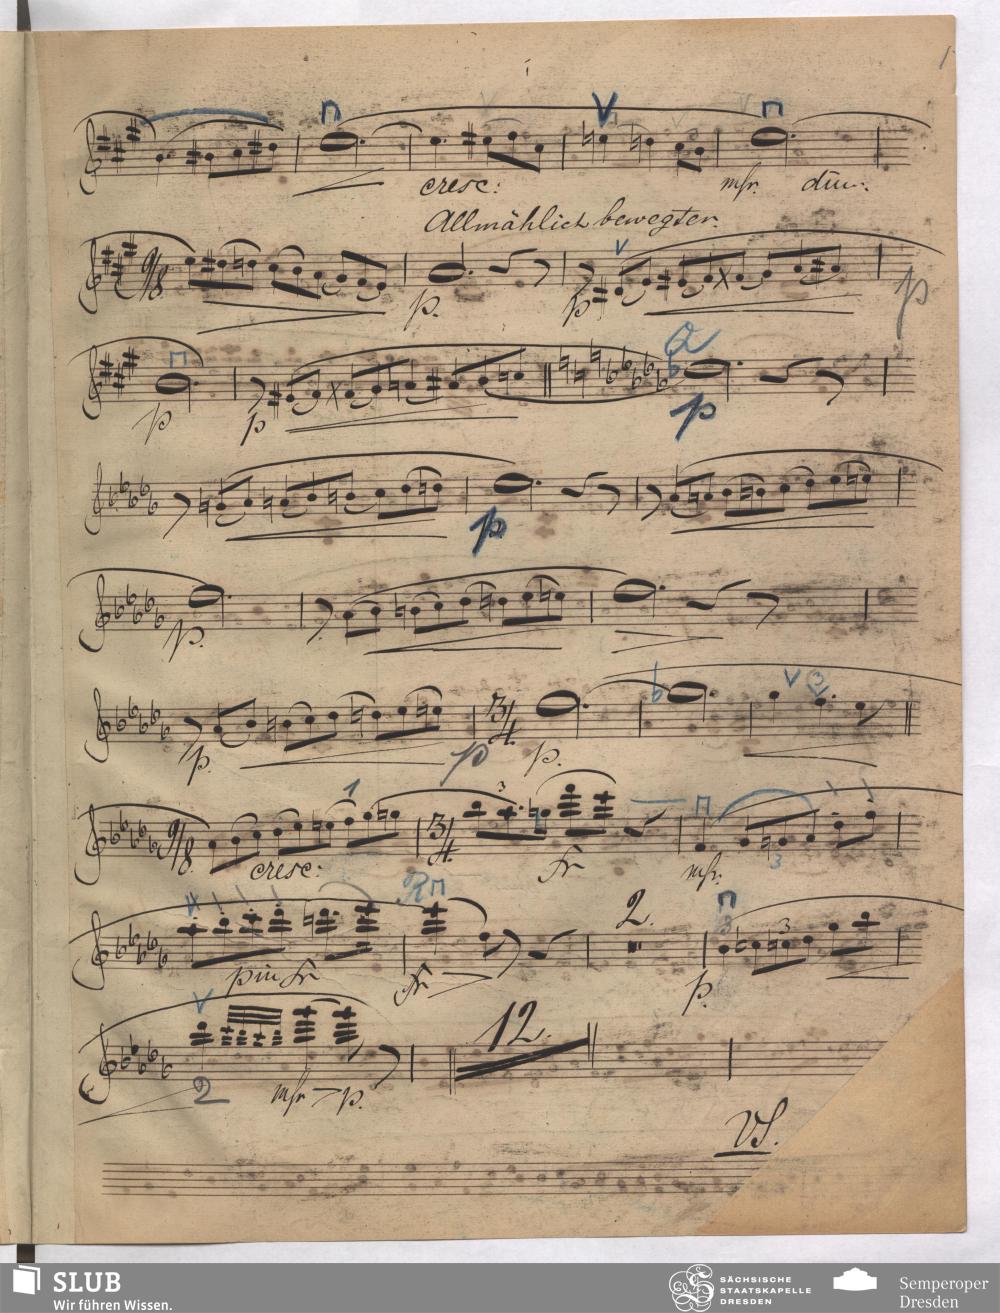 1
cresc: mfr. dim:
Allmählich bewegter.
9/8 p. p p
p p p
p
p.
p. 3/4 p p.
9/8 cresc: 1 3/4 3 fr mfr. 3
più fr fr 2. p. 3
2 mfr p. 12.
VS.
SLUB
Wir führen Wissen.
SÄCHSISCHE
STAATSKAPELLE
DRESDEN
Semperoper
Dresden